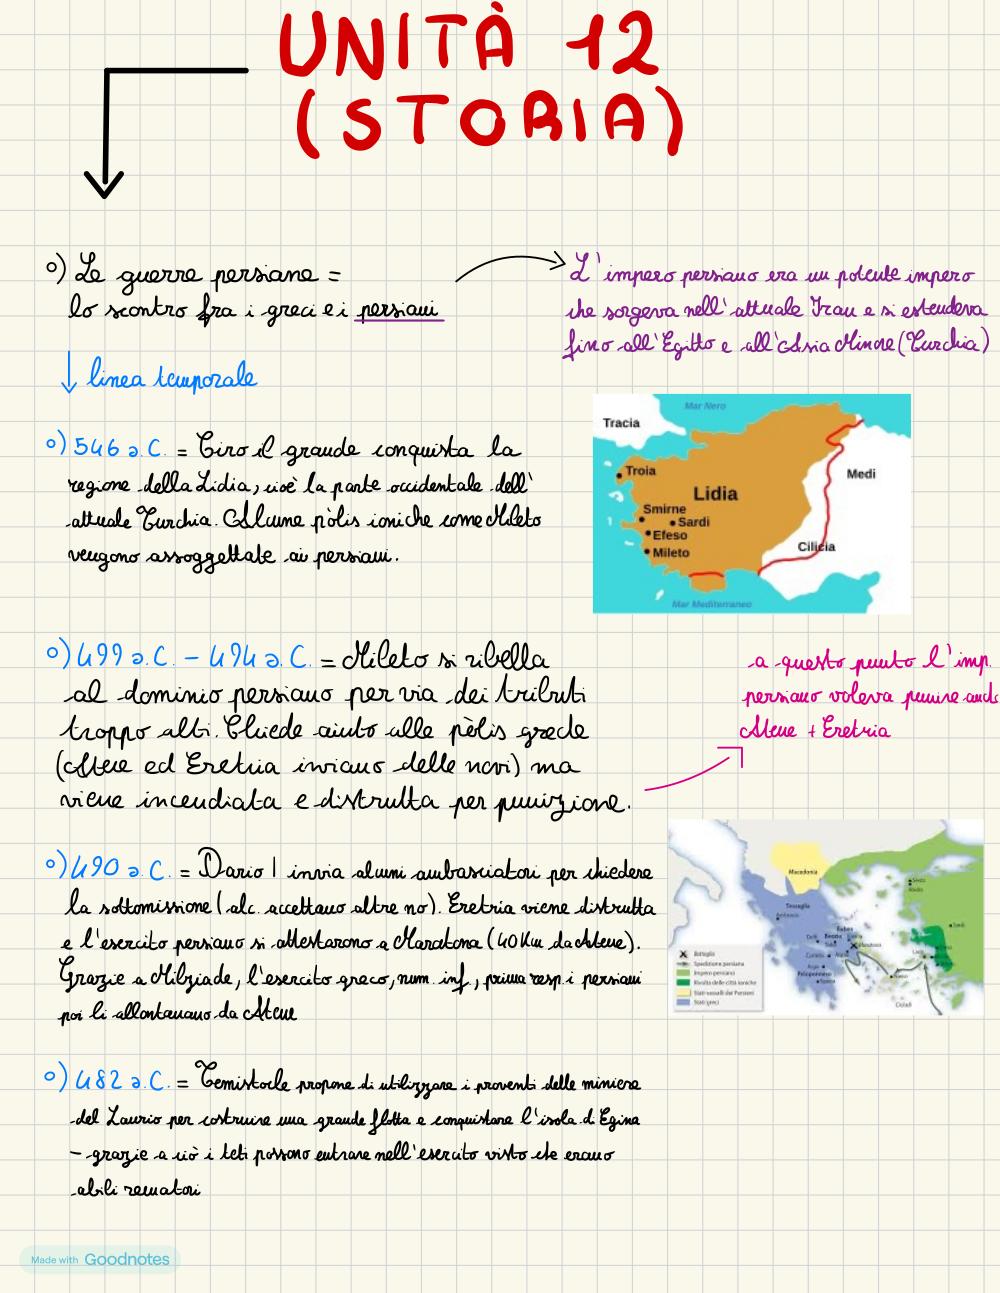 UNITÀ 12
(STORIA)
°) Le guerre persiane =
lo scontro fra i greci e i persiani
L'impero persiano era un potente impero
che sorgeva nell'attuale Iran e si estendeva
fino all'Egitto e all'Asia Minore (Turchia)
linea temporale
°) 546 a.C. = Ciro il grande conquista la
regione della Lidia, cioè la parte occidentale dell'
attuale Turchia. Alcune pòlis ioniche come Mileto
vengono assoggettate ai persiani.
Mar Nero
Tracia
Troia
Medi
Lidia
Smirne
Sardi
Efeso
Mileto
Cilicia
Mar Mediterraneo
°) 499 a.C. - 494 a.C. = Mileto si ribella
al dominio persiano per via dei tributi
troppo alti. Chiede aiuto alle pòlis greche
(Atene ed Eretria inviano delle navi) ma
viene incendiata e distrutta per punizione.
a questo punto l'imp.
persiano voleva punire anche
Atene + Eretria
°) 490 a.C. = Dario I invia alcuni ambasciatori per chiedere
la sottomissione (alc. accettano altre no). Eretria viene distrutta
e l'esercito persiano si attestarono a Maratona (40 Km da Atene).
Grazie a Milziade, l'esercito greco, num. inf., prima resp. i persiani
poi li allontanano da Atene
Macedonia
Tessaglia
Peloponneso
Sparta
Cicladi
Battaglia
Spedizione persiana
Impero persiano
Rivolta delle città ioniche
Stati vassalli dei Persiani
Stati greci
°) 482 a.C. = Temistocle propone di utilizzare i proventi delle miniere
del Laurio per costruire una grande flotta e conquistare l'isola di Egina
- grazie a ciò i teti possono entrare nell'esercito visto che erano
abili rematori
Made with Goodnotes